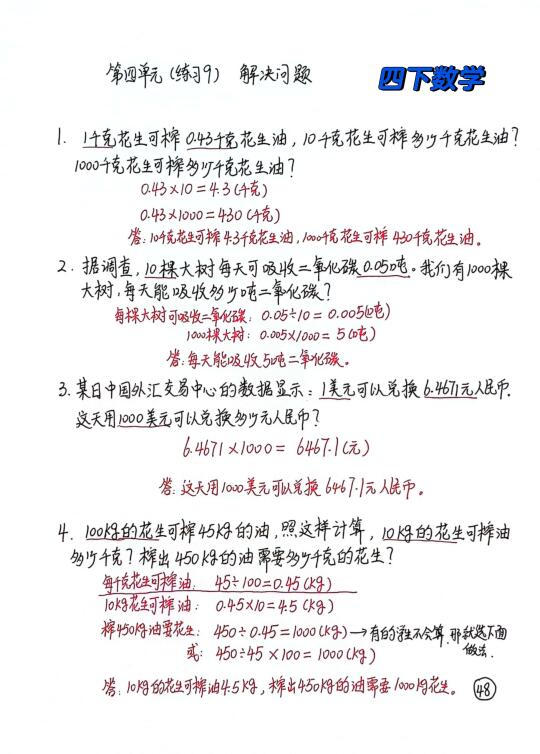 第四单元(练习9) 解决问题 四下数学
1. 1千克花生可榨0.43千克花生油,10千克花生可榨多少千克花生油?
1000千克花生可榨多少千克花生油?
0.43×10=4.3(千克)
0.43×1000=430(千克)
答:10千克花生可榨4.3千克花生油,1000千克花生可榨430千克花生油。
2. 据调查,10棵大树每天可吸收二氧化碳0.05吨。我们有1000棵
大树,每天能吸收多少吨二氧化碳?
每棵大树可吸收二氧化碳:0.05÷10=0.005(吨)
1000棵大树:0.005×1000=5(吨)
答:每天能吸收5吨二氧化碳。
3. 某日中国外汇交易中心的数据显示:1美元可以兑换6.4671元人民币.
这天用1000美元可以兑换多少元人民币?
6.4671×1000=6467.1(元)
答:这天用1000美元可以兑换6467.1元人民币。
4. 100kg的花生可榨45kg的油,照这样计算,10kg的花生可榨油
多少千克?榨出450kg的油需要多少千克的花生?
每千克花生可榨油: 45÷100=0.45(kg)
10kg花生可榨油: 0.45×10=4.5(kg)
榨450kg油要花生: 450÷0.45=1000(kg)→有的学生不会算,那就选下面
做法.
或: 450÷45×100=1000(kg)
答:10kg的花生可榨油4.5kg,榨出450kg的油需要1000kg花生。 48